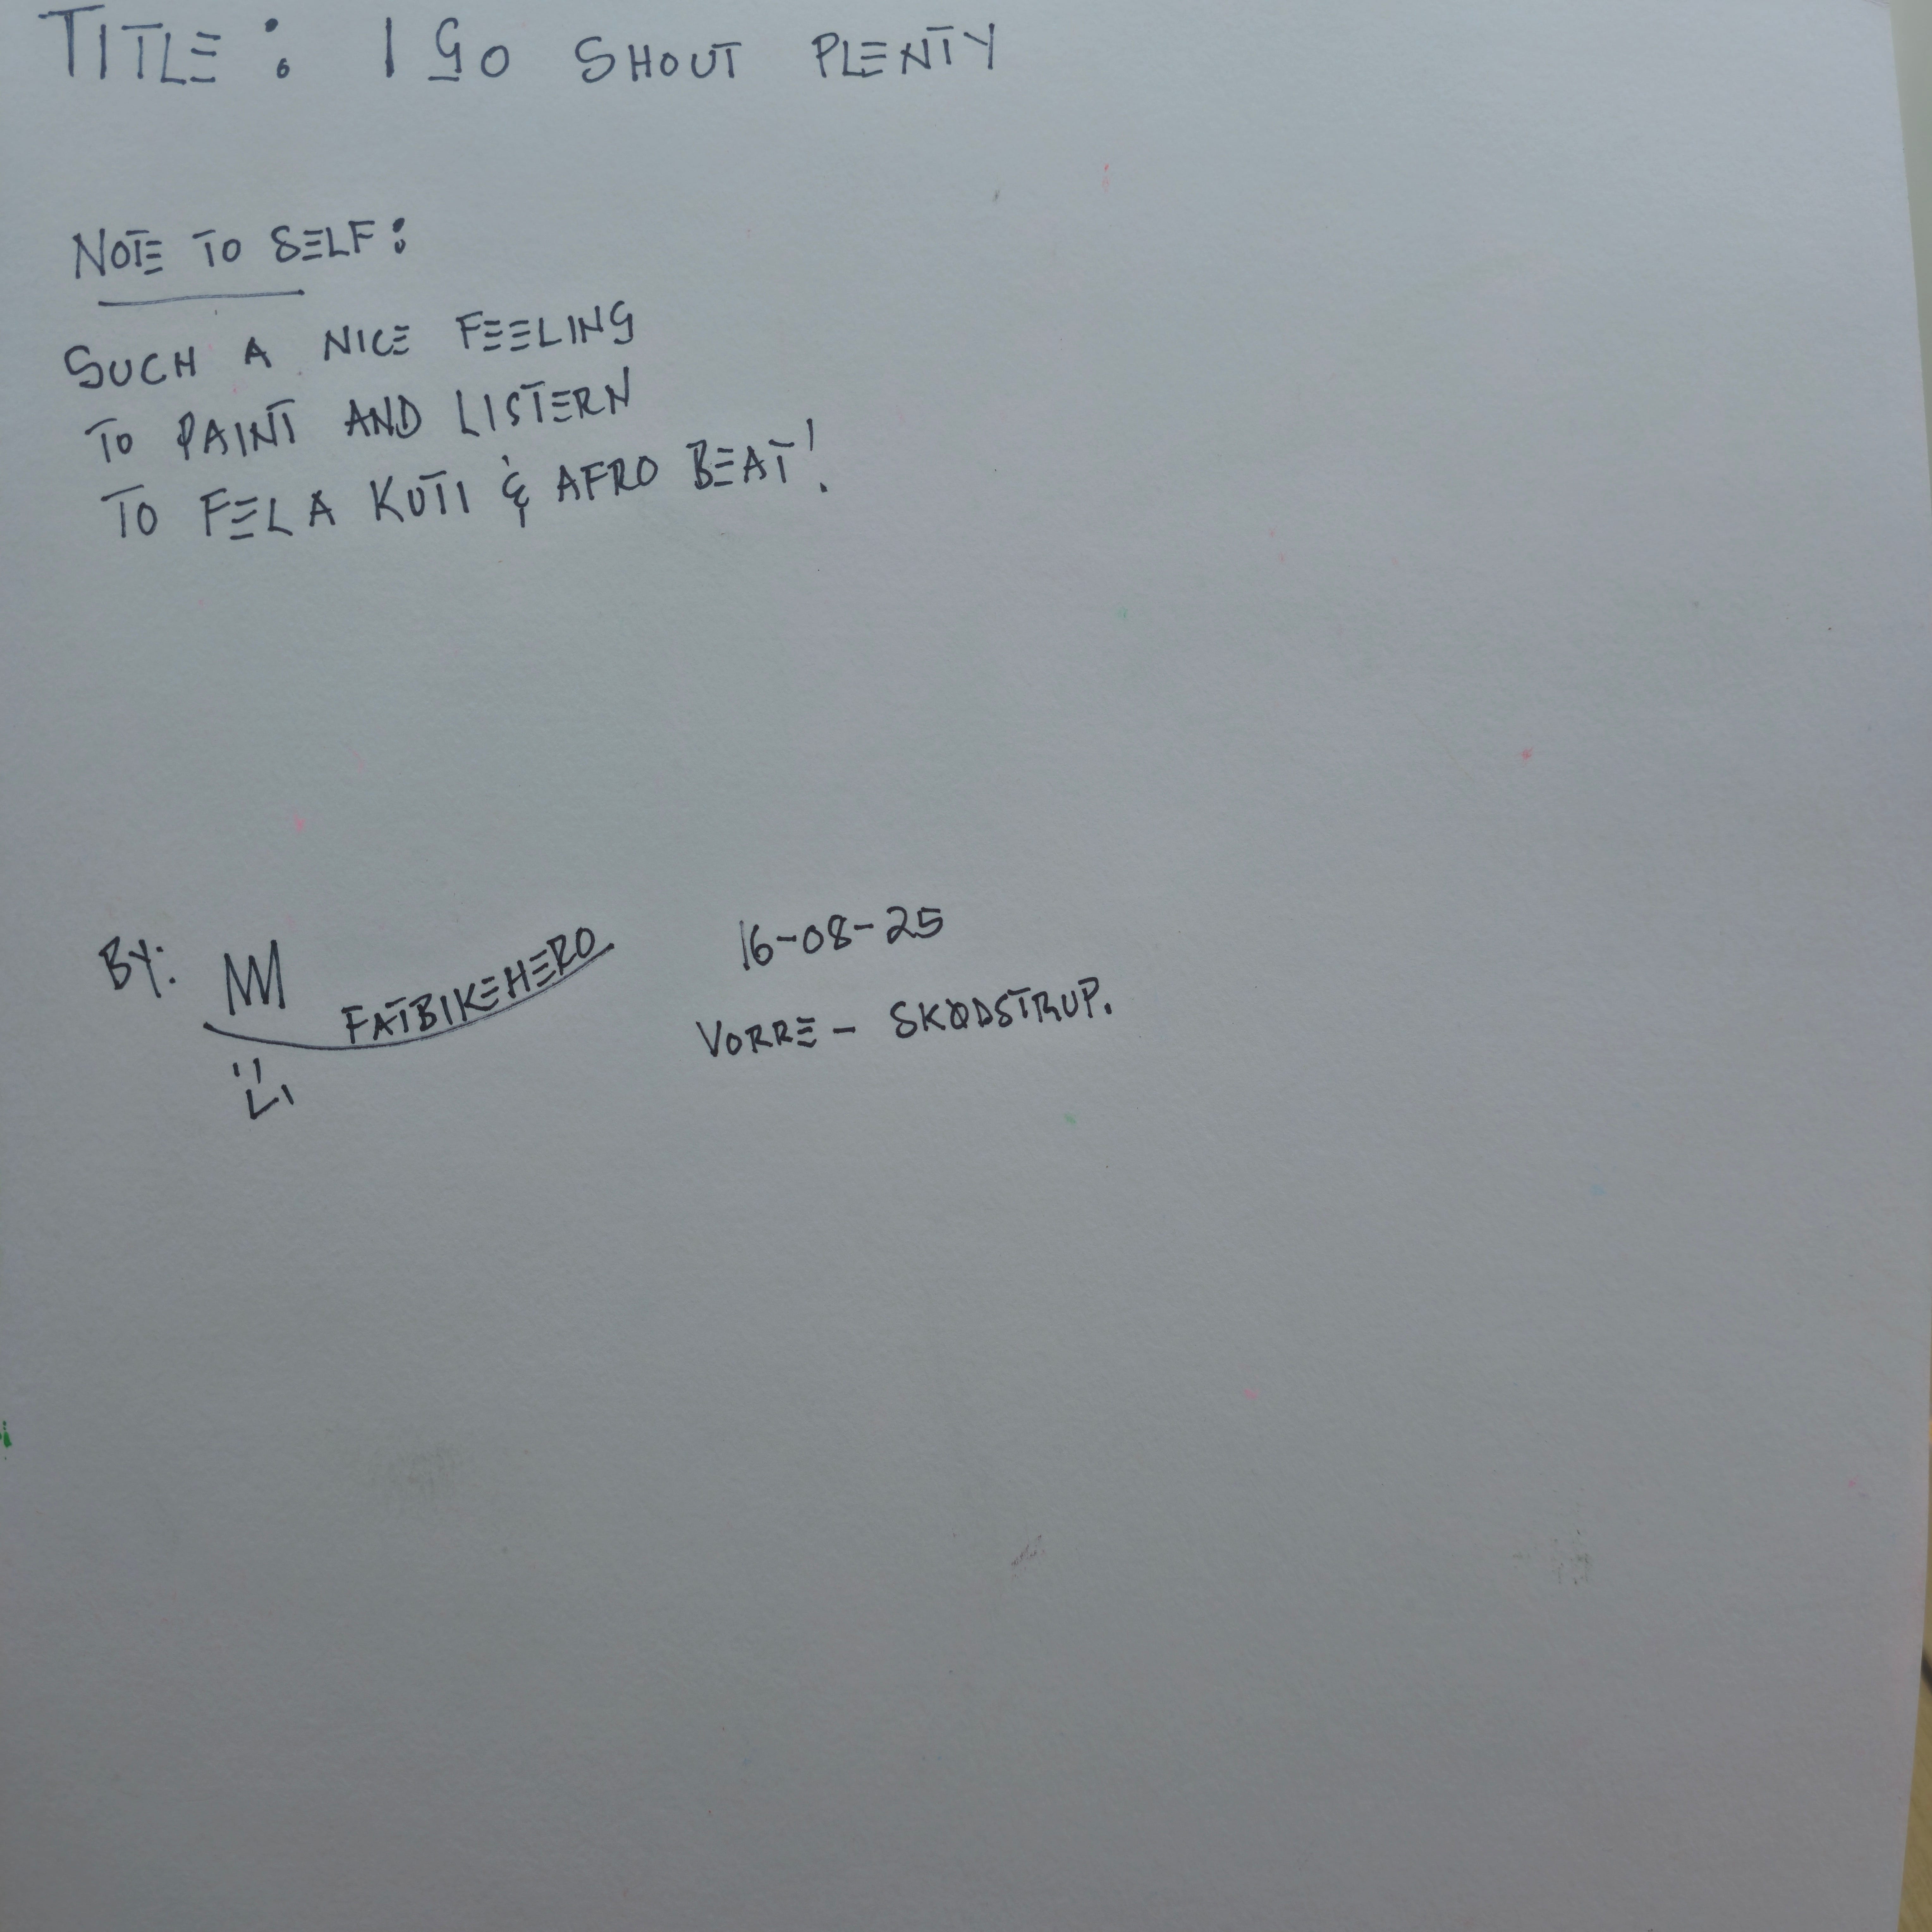 TITLE: I GO SHOUT PLENTY
NOTE TO SELF:
SUCH A NICE FEELING
TO PAINT AND LISTERN
TO FELA KUTI & AFRO BEAT!
BY: FATBIKEHERO
16-08-25
VORRE - SKØDSTRUP.